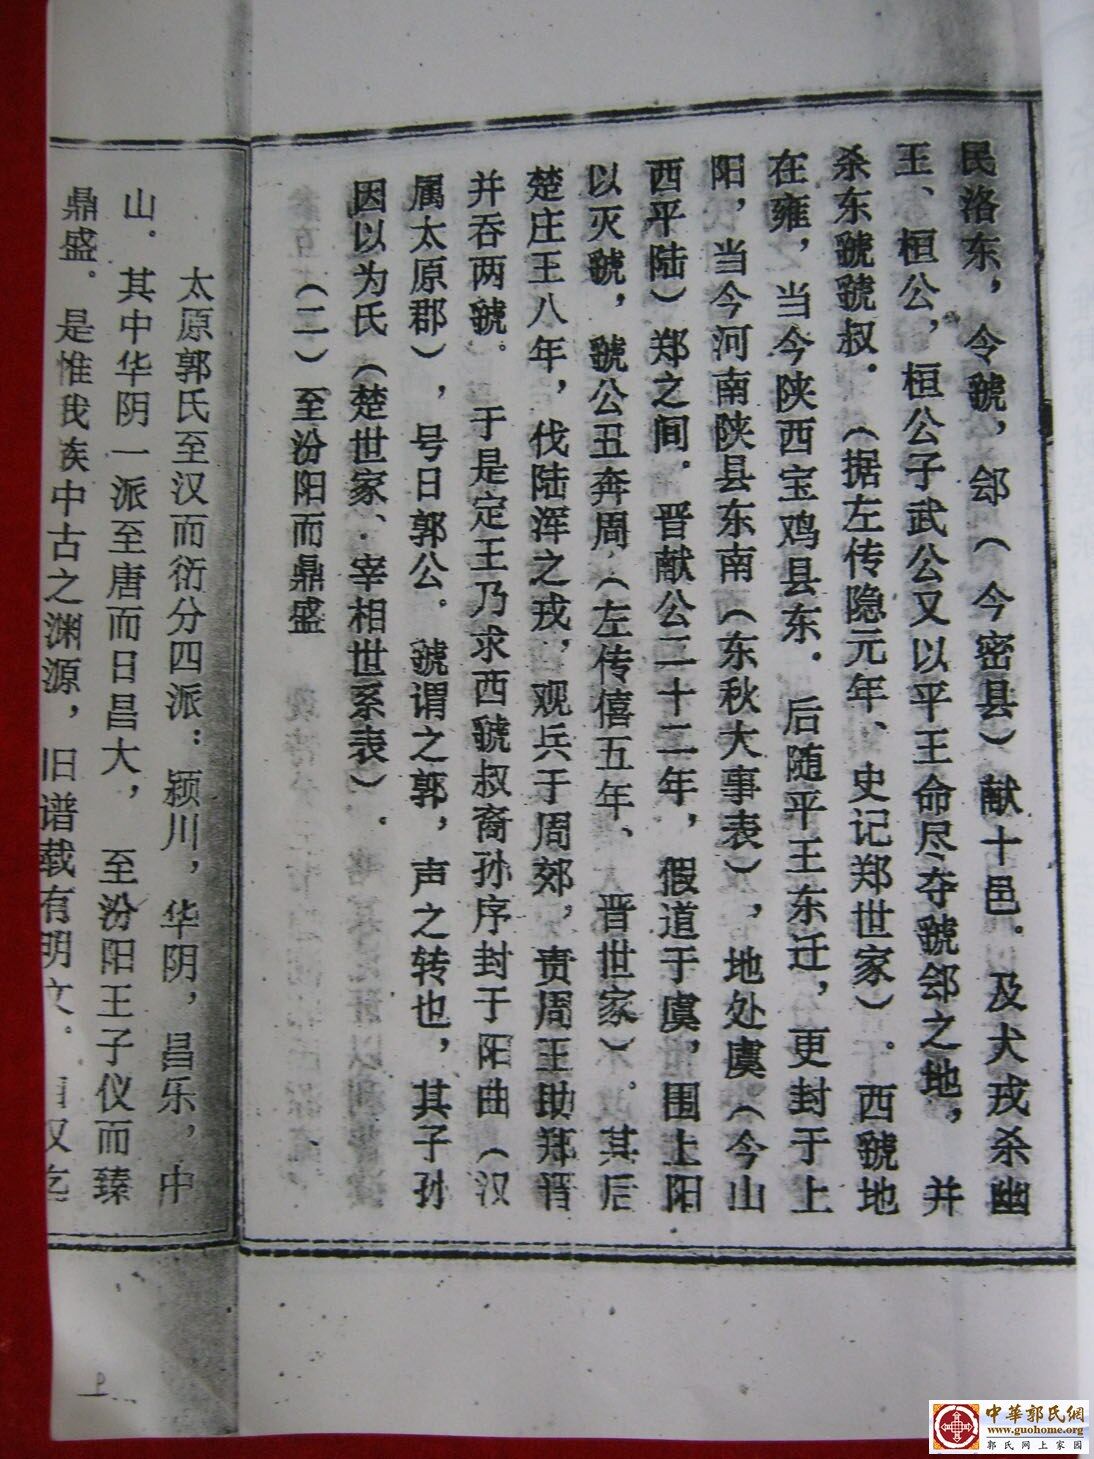 民洛东，令虢，郐（今密县）献十邑．及犬戎杀幽
王、桓公，桓公子武公又以平王命尽夺虢郐之地，并
杀东虢虢叔．（据左传隐元年、史记郑世家）．西虢地
在雍，当今陕西宝鸡县东．后随平王东迁，更封于上
阳，当今河南陕县东南（东秋大事表），地处虞（今山
西平陆）郑之间．晋献公二十二年，假道于虞，围上阳
以灭虢，虢公丑奔周（左传僖五年、晋世家）．其后
楚庄王八年，伐陆浑之戎，观兵于周郊，责周王助郑晋
并吞两虢．于是定王乃求西虢叔裔孙序封于阳曲（汉
属太原郡），号曰郭公．虢谓之郭，声之转也，其子孙
因以为氏（楚世家、宰相世系表）．
（二）至汾阳而鼎盛
太原郭氏至汉而衍分四派：颍川，华阴，昌乐，中
山．其中华阴一派至唐而日昌大，至汾阳王子仪而臻
鼎盛．是惟我族中古之渊源，旧谱载有明文．自汉迄
中華郭氏網
www.guohome.org
郭氏网上家园